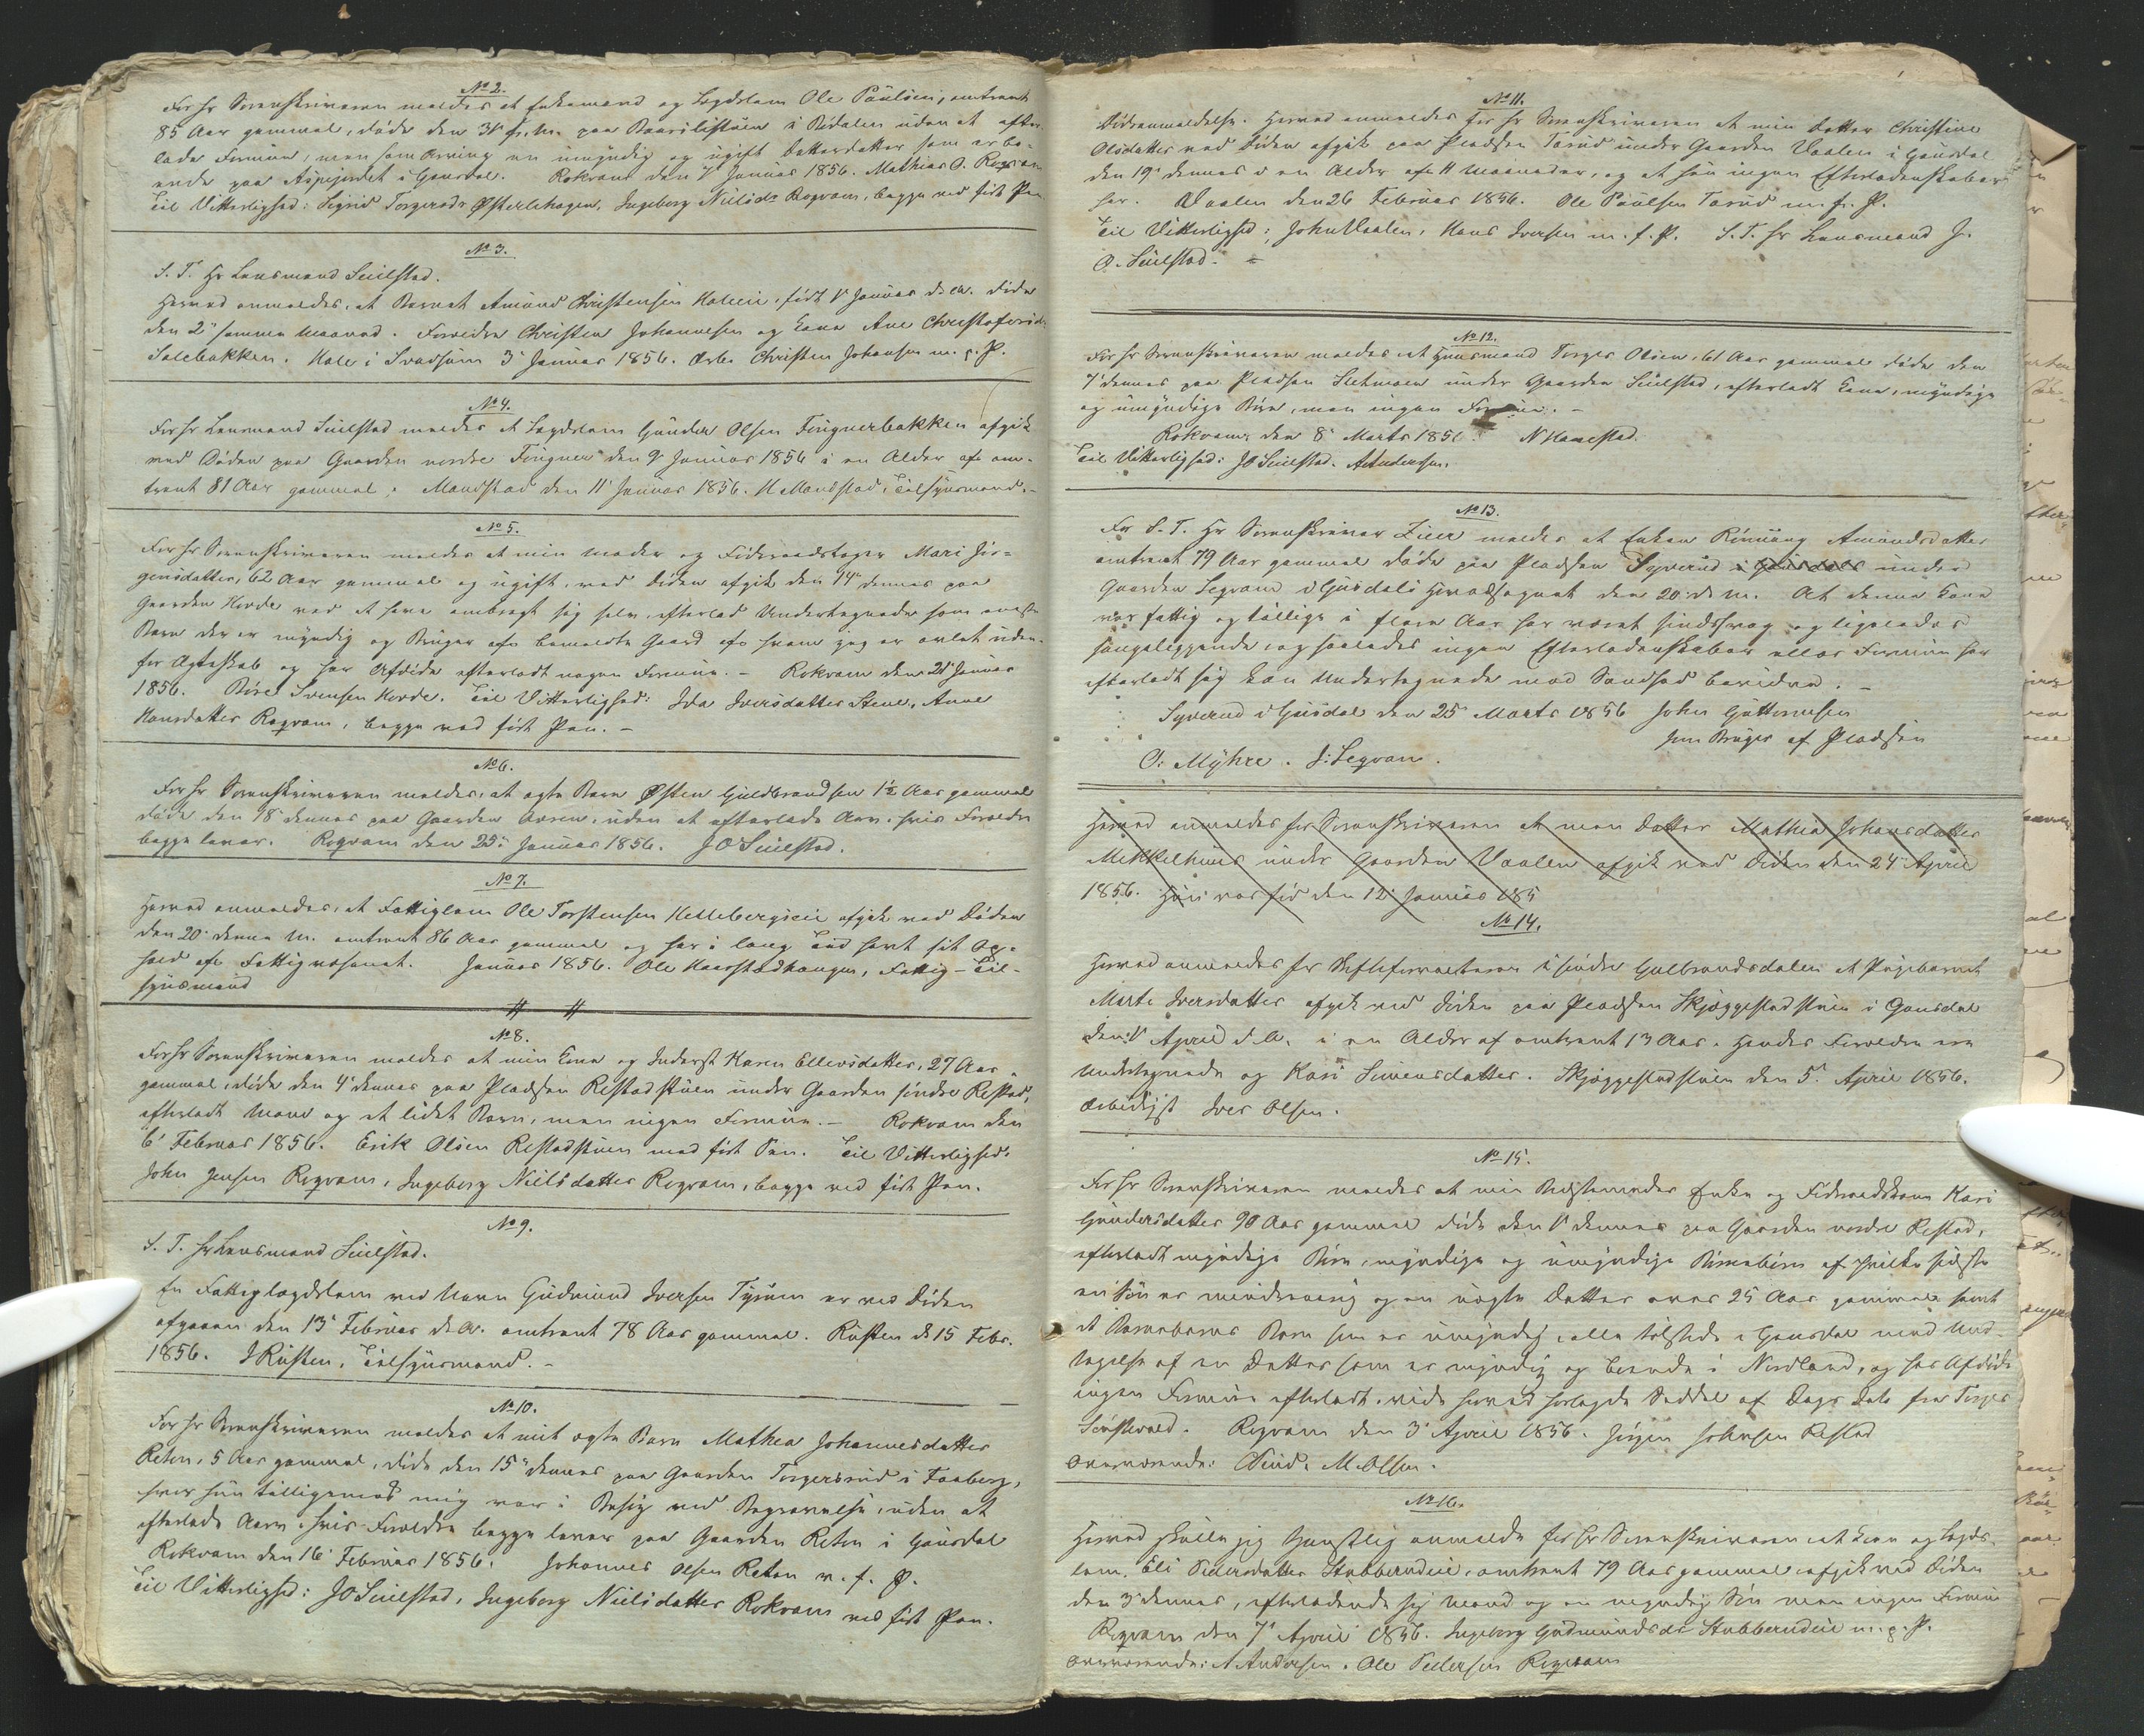 No 2.
For Hr Sorenskriveren meldes at Enkemand og Lægdslem Ole Paulsen, omtrent
85 Aar gammel, døde den 31te f. M. paa Baarslistuen i Bødalen uden at efter-
lade Formue, men som Arving en umyndig og ugift Datterdatter som er bo-
ende paa Aspejordet i Gausdal. Rokvam den 7de Januar 1856. Mathias O. Roqvam
Til Vitterlighed: Sigrid Torgersdr Østerlehagen, Ingeborg Nielsdr Roqvam, begge ved ført Pen
No 3.
S. T. Hr Lensmand Suilstad.
Herved anmeldes, at Barnet Amund Christensen Haleeie, født 1 Januar d. A. døde
den 2den samme Maaned. Forældre Christen Johannesen og Kone Ane Christofersdr
Salebakken. Hale i Svadsum 3 Januar 1856. Ærb. Christen Johansen m. p. P.
No 4.
For Hr Lensmand Suilstad meldes at Lægdslem Gunder Olsen Fingnerbakken afgik
ved Døden paa Gaarden nordre Fingner den 9 Januar 1856 i en Alder af om-
trent 81 Aar gammel. Mandstad den 11 Januar 1856. H Mandstad, Tilsynsmand.
No 5.
For Hr Sorenskriveren meldes at min Moder og Føderaadstager Mari Jør-
gensdatter, 62 Aar gammel og ugift, ved Døden afgik den 14de dennes paa
Gaarden Horde ved at have ombragt sig selv, efterlod Undertegnede som eneste
Barn der er myndig og Bruger af bemeldte Gaard af hvem jeg er avlet uden-
for Ægteskab og har Afdøde efterladt nogen Formue. - Rokvam den 21 Januar
1856. Børe Svensen Horde. Til Vitterlighed: Ida Iversdatter Stene, Anne
Hansdatter Roqvam, begge ved ført Pen. -
No 6.
For Hr Sorenskriveren meldes, at ægte Barn Østen Guldbrandsen 1½ Aar gammel
døde den 18 dennes paa Gaarden uden at efterlade Arv, hvis Forældre
begge lever. Roqvam den 25 Januar 1856. J O Suilstad.
No 7.
Herved anmeldes, at Fattiglem Ole Torstensen Hellebergseie afgik ved Døden
den 20 denne M. omtrent 86 Aar gammel og har i lang Tid havt sit Op-
hold af Fattigvæsenet. Januar 1856. Ole Haarstadhaugen, Fattig-Til-
synsmand
No 8.
For Hr Sorenskriveren meldes at min Kone og Inderst Karen Ellevsdatter, 27 Aar
gammel, døde den 4 dennes paa Pladsen Restadstuen under Gaarden søndre Restad,
efterladt Mand og et lidet Barn, men ingen Formue. - Rokvam den
6 Februar 1856. Erik Olsen Restadstuen med ført Pen. Til Vitterlighed:
John Jensen Roqvam, Ingeborg Nielsdatter Roqvam, begge ved ført Pen.
No 9.
S. T. Hr Lensmand Suilstad.
En Fattiglægdslem ved Navn Gudmund Iversen Tysum er ved Døden
afgaaen den 13 Februar d. A. omtrent 78 Aar gammel. Rusten d. 15 Febr.
1856. I Rusten, Tilsynsmand. -
No 10.
For Hr Sorenskriveren meldes at mit ægte Barn Mathea Johannesdatter
Reton, 5 Aar gammel, døde den 15de dennes paa Gaarden Torgersrud i Faaberg,
hvor hun tilligemed mig var i Besøg ved Begravelse, uden at
efterlade Arv, hvis Forældre begge lever paa Gaarden Reton i Gausdal
Rokvam den 16 Februar 1856. Johannes Olsen Reton m. f. P.
Til Vitterlighed: J O Suilstad, Ingeborg Nielsdatter Rokvam ved ført Pen.
No 11.
Dødsanmeldelse. Herved anmeldes for Hr Sorenskriveren at min Datter Christine
Olsdatter ved Døden afgik paa Pladsen Tarud under Gaarden Vaalen i Gausdal
den 19 dennes i en Alder af 11 Maaneder, og at hun ingen Efterladenskaber
har. Vaalen den 26 Februar 1856. Ole Paulsen Tarud m. f. P.
Til Vitterlighed: John Vaalen, Hans Iversen m. f. P. S. T. Hr Lensmand J.
O. Suilstad.
No 12.
For Hr Sorenskriveren meldes at Huusmand Torger Olsen, 61 Aar gammel døde den
7 dennes paa Pladsen Sletmoen under Gaarden Suilstad, efterladt Kone, myndige
og umyndige Børn, men ingen Formue. -
Rokvam den 8 Marts 1856. N Hanestad.
Til Vitterlighed: J O Suilstad. A Andersen.
No 13.
For S. T. Hr Sorenskriver Zier meldes at Enken Rønnaug Amundsdatter
omtrent 79 Aar gammel døde paa Pladsen Syverud i Gausdal under
Gaarden Seqvam i Gusdals Hovedsogn den 20 d. M. At denne Kone
var fattig og tillige i flere Aar har været sindssvag og ligeledes
sengeliggende, og saaledes ingen Efterladenskaber eller Formue har
efterladt sig kan Undertegnede med Sandhed bevidne. -
Syverud i Gusdal den 25 Marts 1856 John Guttormsen
som Bruger af Pladsen
O: Myhre. S: Seqvam.
Herved anmeldes for Sorenskriveren at min Datter Mathia Johansdatter
Mikkelhuus under Gaarden Vaalen afgik ved Døden den 24 April
1856. Hun var fød den 12 Januar 185
No 14.
Herved anmeldes for Skifteforvalteren i søndre Gulbrandsdalen at Pigebarnet
Marte Iversdatter afgik ved Døden paa Pladsen Skjæggestadstuen i Gausdal
den 1 April d. A. i en Alder af omtrent 13 Aar. Hendes Forældre ere
Undertegnede og Kari Simensdatter. Skjæggestadstuen den 5 April 1856.
Ærbødigst Iver Olsen.
No 15.
For Hr Sorenskriveren meldes at min Bedstemoder Enke og Føderaadskone Kari
Gundersdatter 90 Aar gammel døde den 1 dennes paa Gaarden nordre Restad,
efterladt myndige Børn, myndige og umyndige Børnebørn af hvilke sidste
en Søn er mindreaarig og en ugift Datter over 25 Aar gammel samt
et Barnebarns Barn som er umyndig, alle tilstede i Gausdal med Und-
tagelse af en Datter som er myndig og boende i Nordland, og har Afdøde
ingen Formue efterladt, vide herved forlagde Seddel af Dags Dato fra Torger
Roqvam den 3 April 1856. Jørgen Johnsen Restad
Overværende: M. Olsen.
No 16.
Herved skulle jeg tjenstlig anmelde for Hr Sorenskriveren at Kone og Lægds-
lem, Eli Pedersdatter Stubberudeie, omtrent 79 Aar gammel, afgik ved Døden
den 3 dennes, efterladende sig Mand og en myndig Søn men ingen Formue
Roqvam den 7 April 1856. Ingeborg Gudmundsdr Stubberudeie m. p. P.
Overværende: A Andersen. Ole Pedersen Roqvam